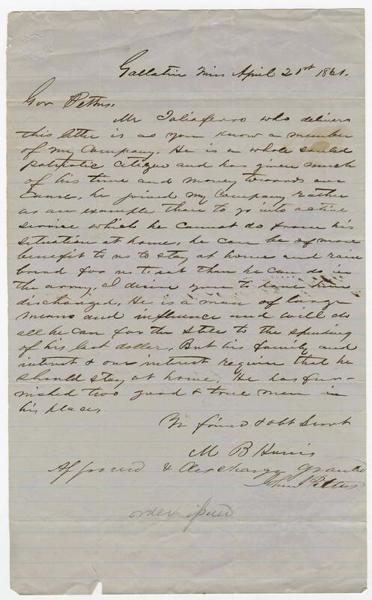 Gallatin Miss April 21st 1861.
Gov Pettus.
Mr Taliaferro who delivers
this letter is as you know a member
of my Company. He is a whole souled
patriotic citizen and has given much
of his time and money towards our
cause, he joined my Company rather
as an example than to go into active
service which he cannot do from his
situation at home, he can be of more
benefit to us to stay at home and
for us to set than he can do in
the army. I desire you to have him
discharged. He is a man of large
means and influence and will do
all he can for the State to the spending
of his last dollar. But his family and
interest & our interest require that he
should stay at home. He has fur-
nished two good & true men in
his place
Yr friend & obt Servt
M B Harris
Approved & discharge granted
John J Pettus
order issued